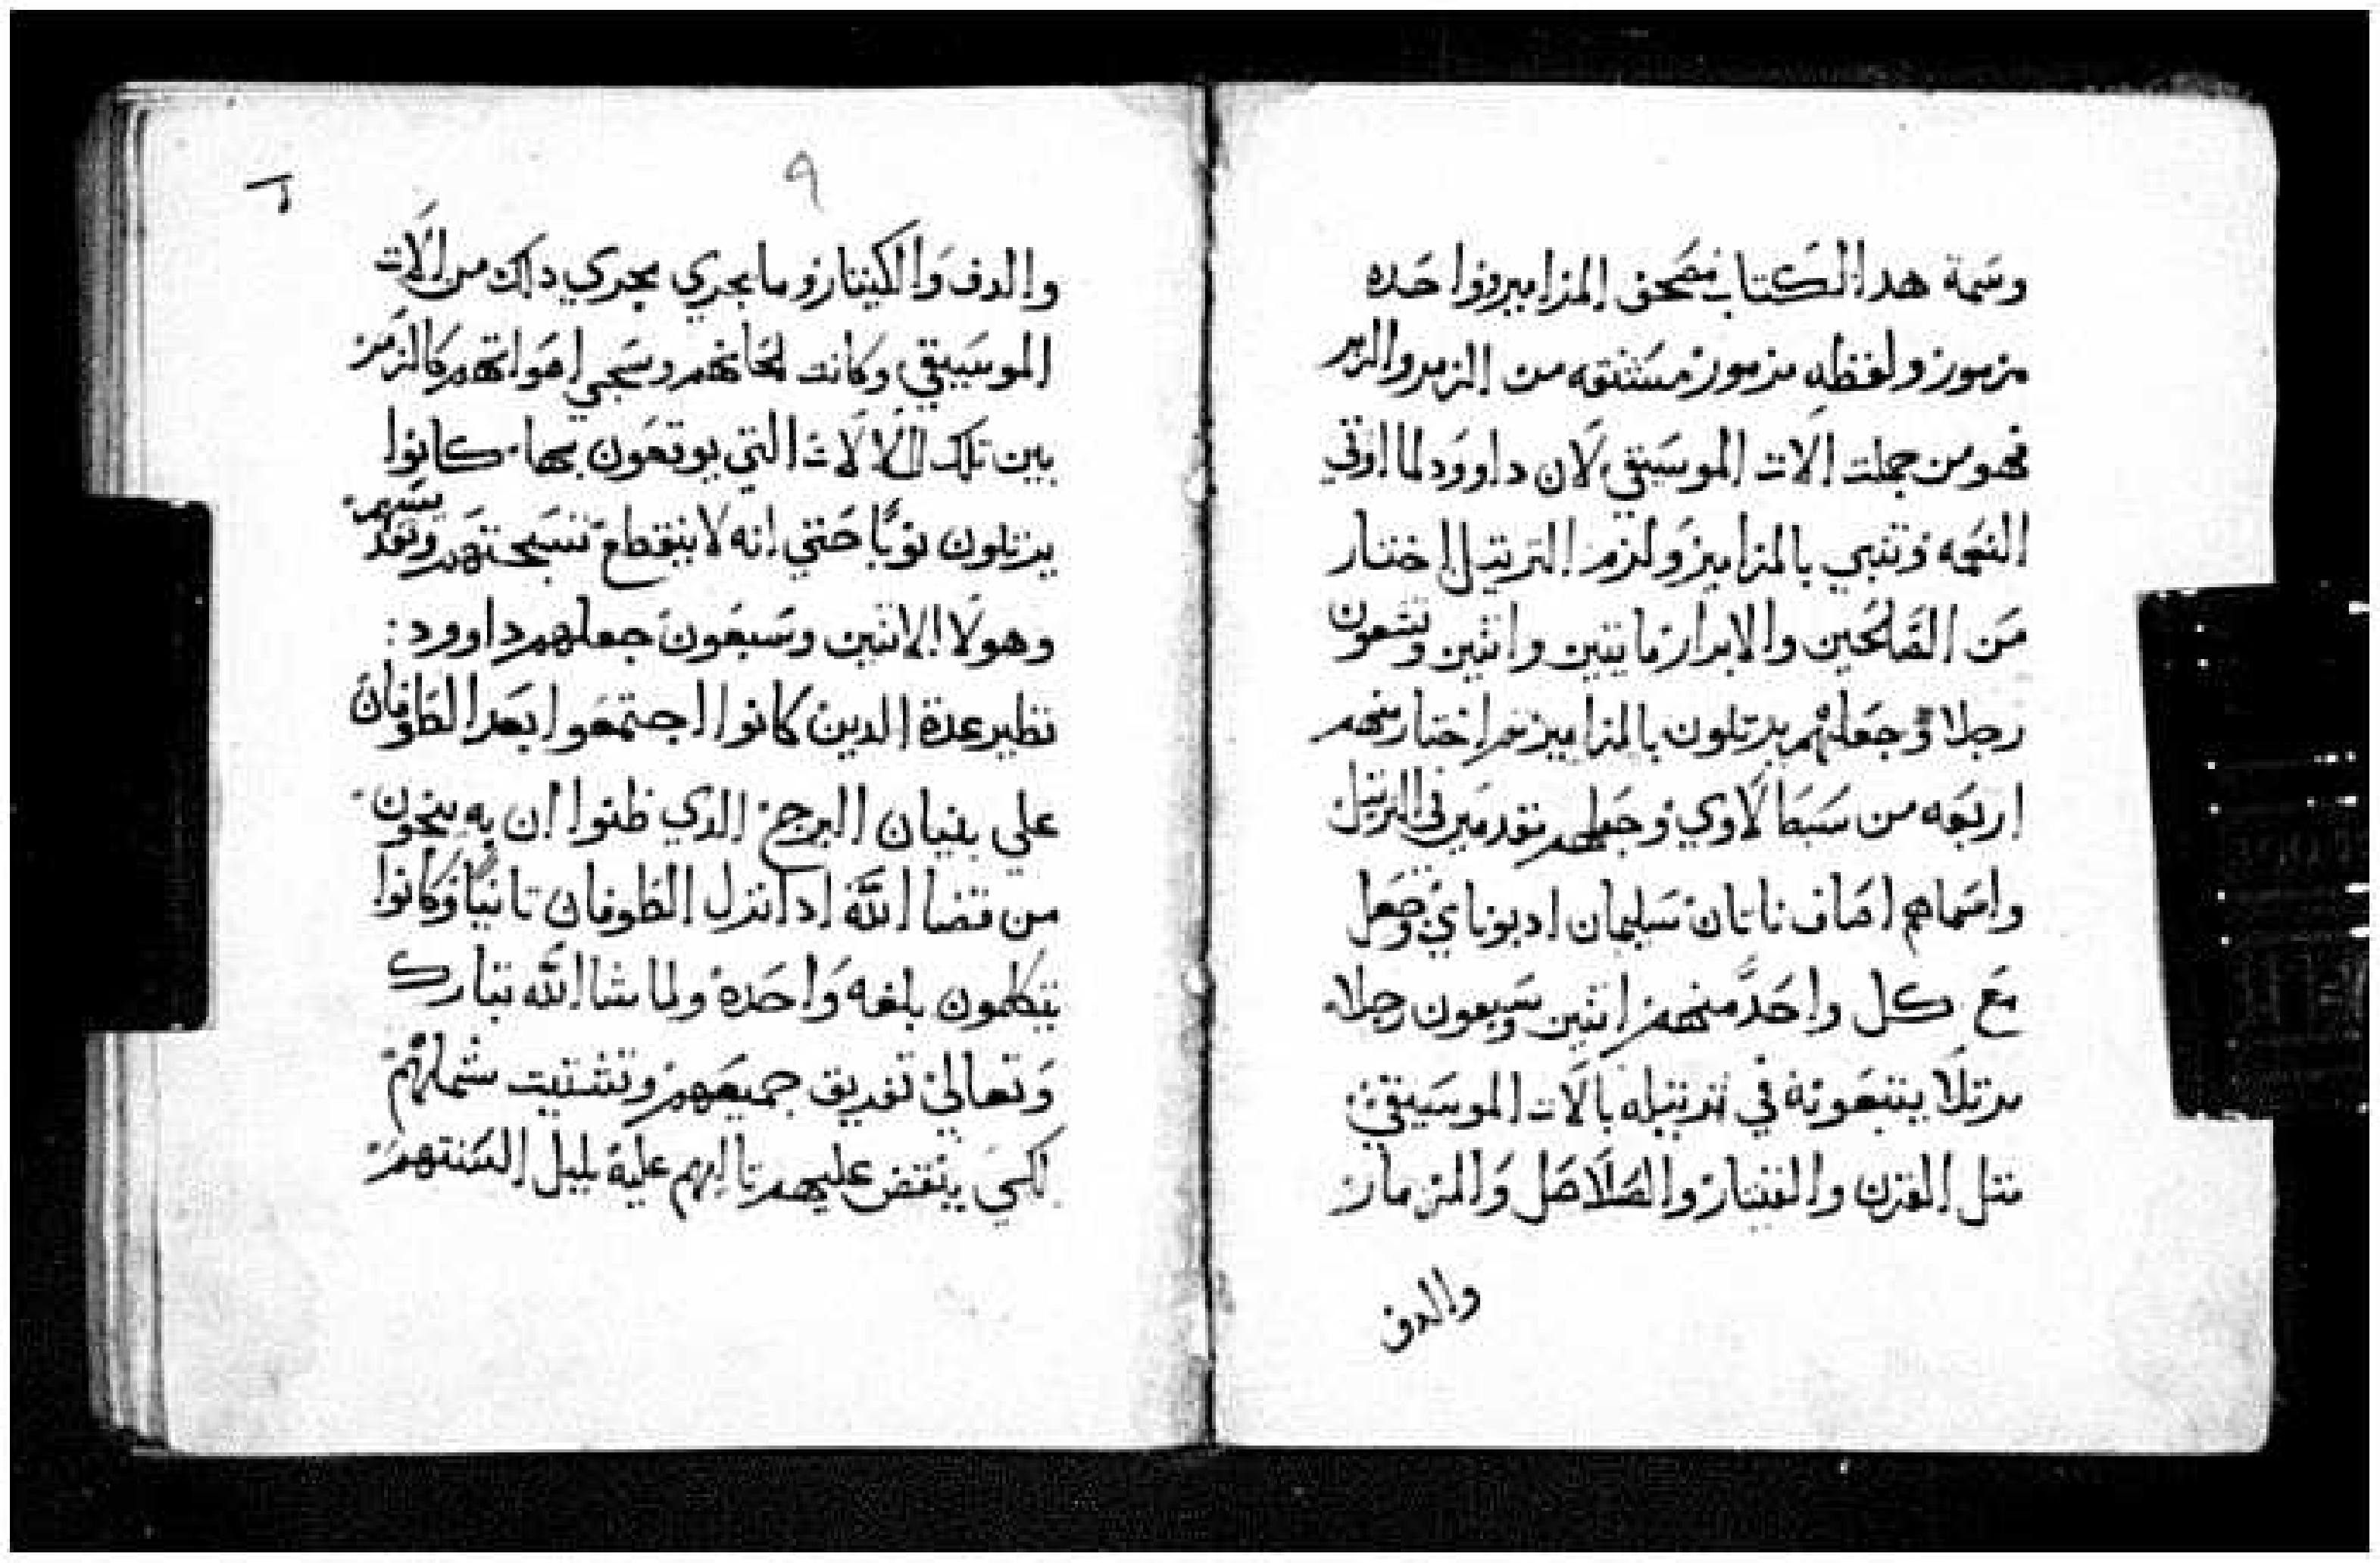 وسمة هدا الكتاب مصحف المزامير وواحده
مزمور ولفظه مزمور مشتقه من الزمر والزمر
فهو من جملت الات الموسيقي لان داوود لما اوتي
النعمه وتنبي بالمزامير ولزم الترتيل اختار
من الصالحين والابرار مايتين واتنين وتسعون
رجلا وجعلهم يرتلون بالمزامير تم اختار منهم
اربعه من سبط لاوي وجعلهم مقدمين في الترتيل
واسماهم اصاف ناتان سليمان اديوناي وجعل
مع كل واحد منهم اتنين وسبعون رجلا
مرتلا يتبعونه في ترتيله بالات الموسيقي
متل القرن والقيتار والصلاصل والمزمار
والدف
٩
والدف والكيتار وما يجري مجري داك من الات
الموسيقي وكانت لحانهم وشجي اصواتهم كالزمر
بين تلك الالات التي يوقعون بها كانوا
يرتلون نوبا حتي انه لا ينقطع تسبحتهم وتقديسهم
وهولا الاتنين وسبعون جعلهم داوود :
نظير عدة الدين كانوا اجتمعوا بعد الطوفان
علي بنيان البرج الدي ظنوا ان به ينجون
من قضا الله ادا نزل الطوفان تانيا وكانوا
يتكلمون بلغه واحده ولما شا الله تبارك
وتعالي تفريق جميعهم وتشتيت شملهم
لكي ينقض عليهم تاابهم عليه بلبل السنتهم